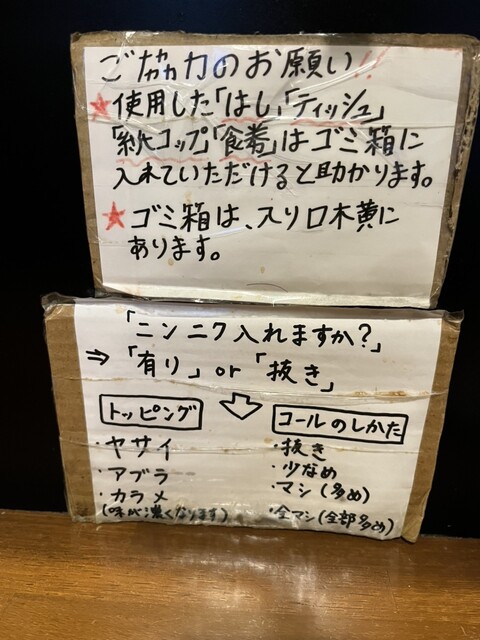 ご協力のお願い!!
★使用した「はし」「ティッシュ」
「紙コップ」「食券」はゴミ箱に
入れていただけると助かります。
★ゴミ箱は、入り口横に
あります。
「ニンニク入れますか?」
⇒「有り」or「抜き」
トッピング
・ヤサイ
・アブラ
・カラメ
(味が濃くなります)
コールのしかた
・抜き
・少なめ
・マシ(多め)
・全マシ(全部多め)